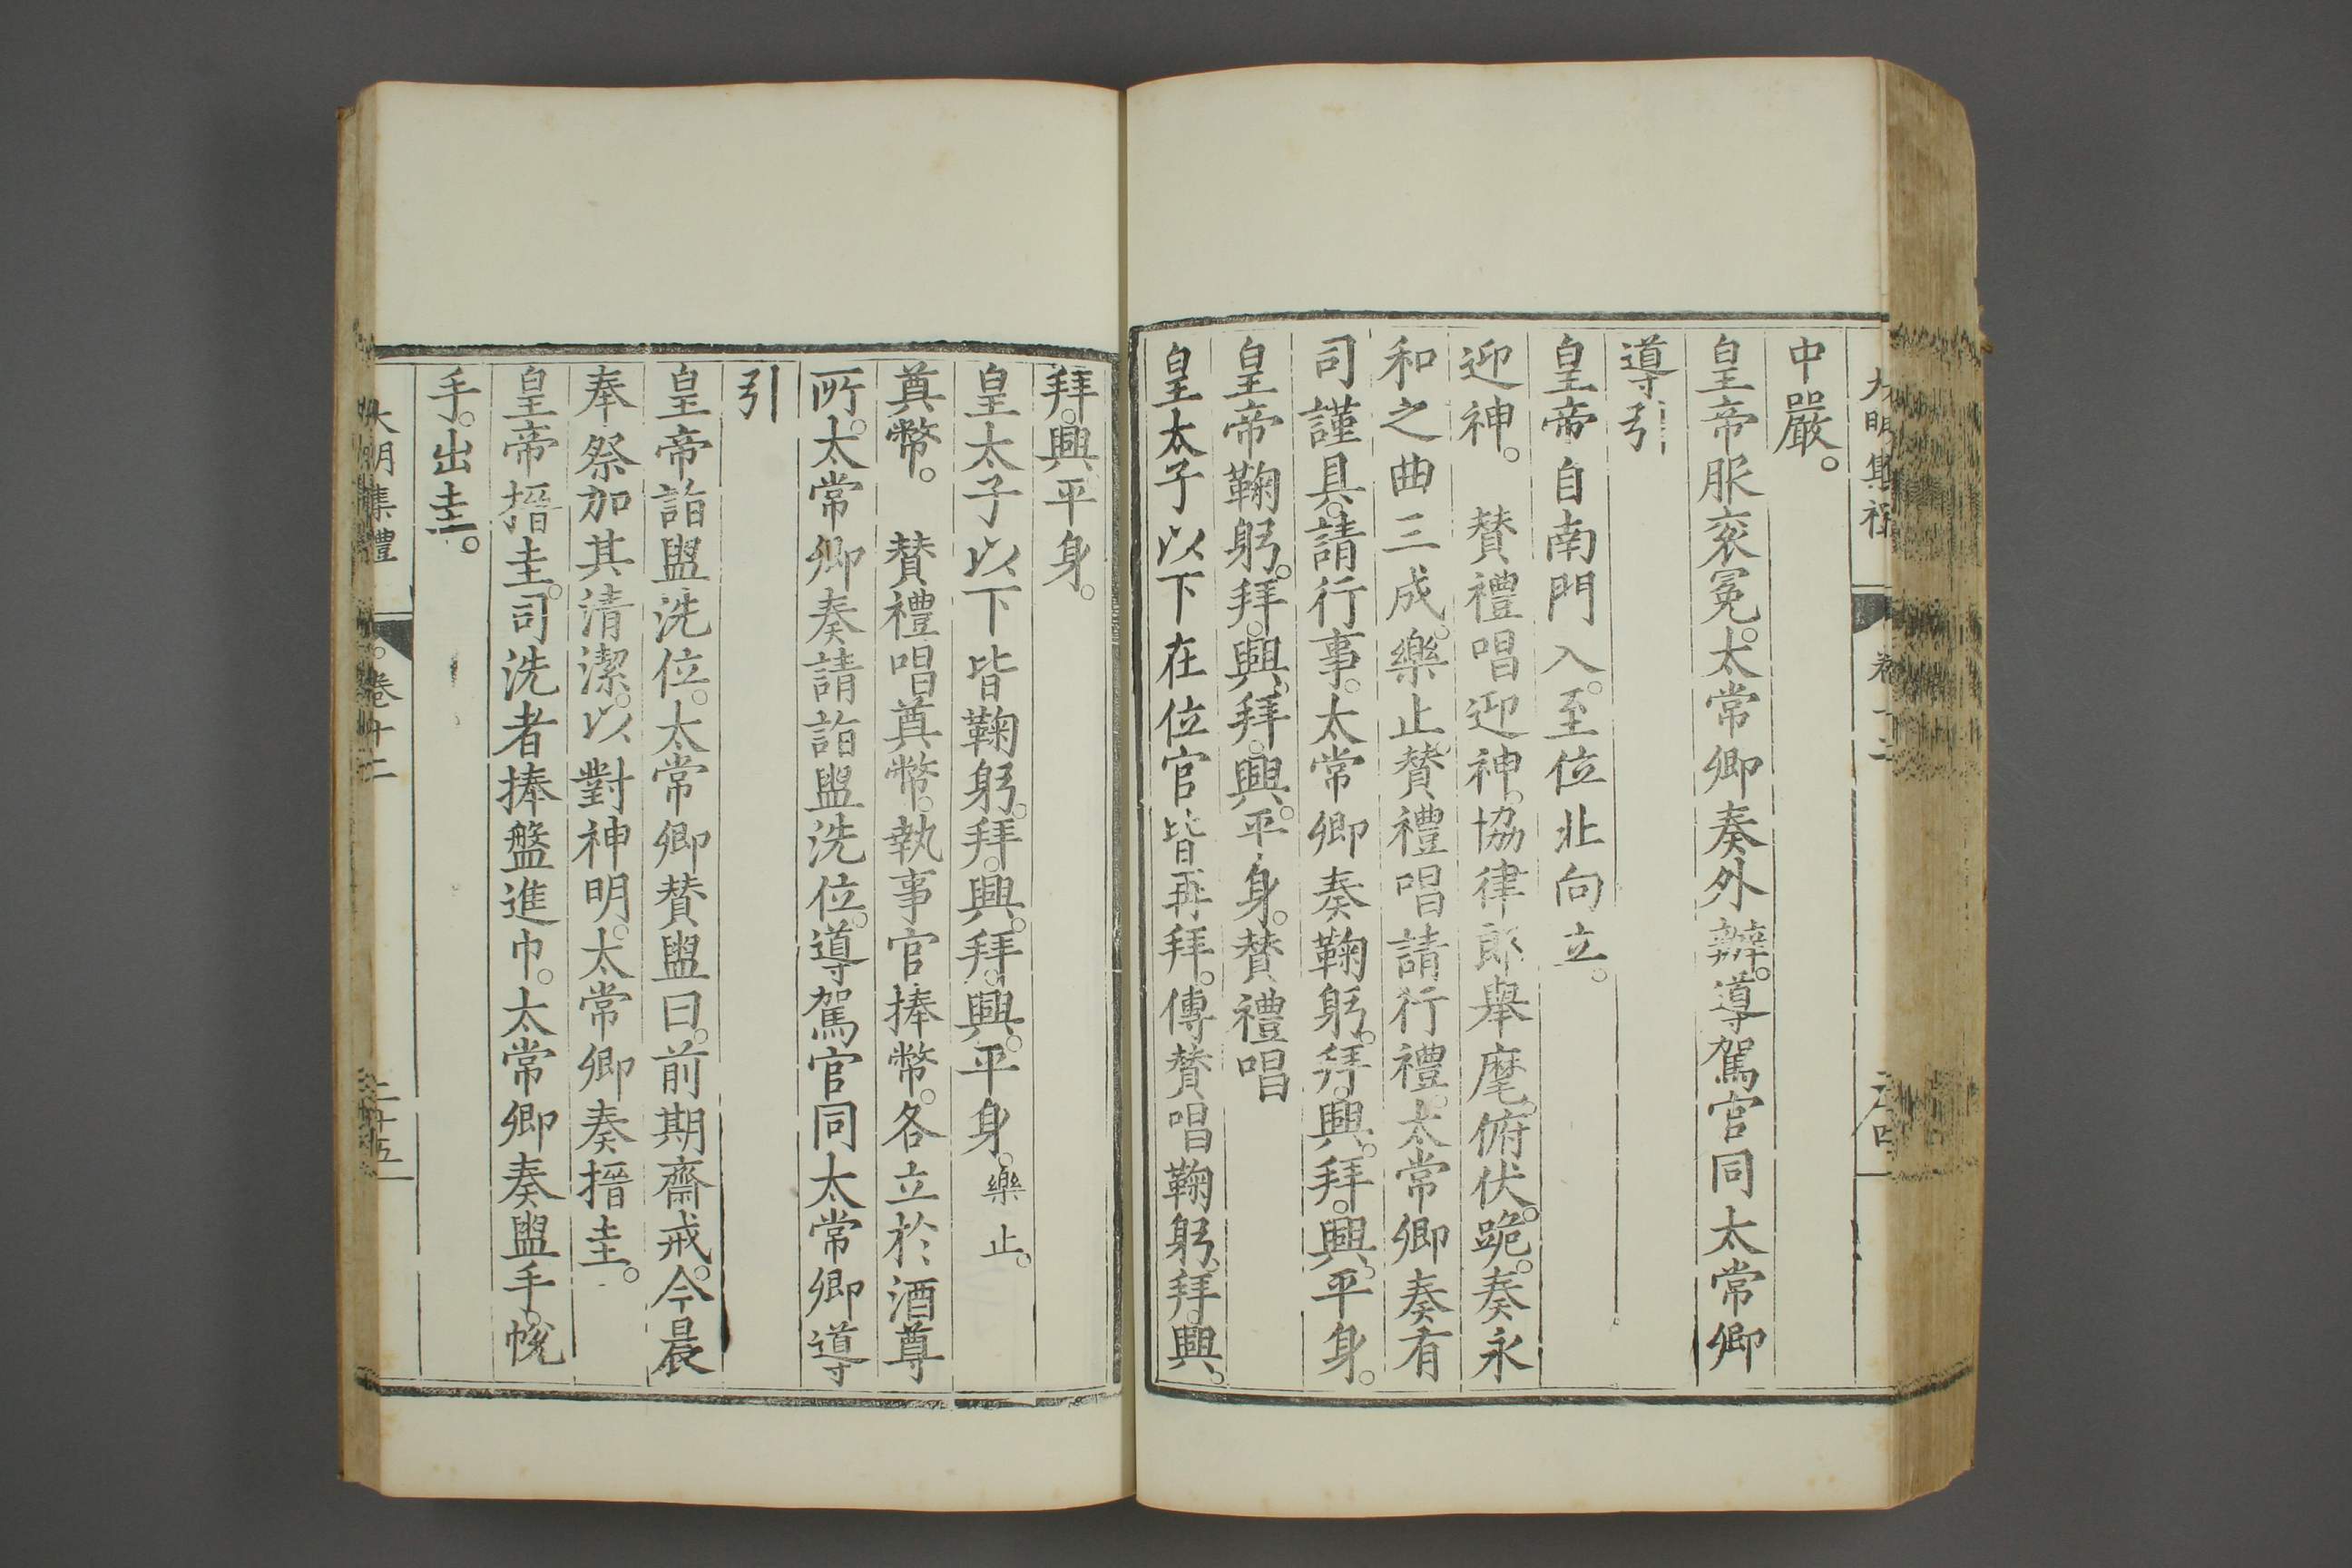 大明集禮 卷十二
中嚴。
皇帝服衮冕。太常卿奏外辦。導駕官同太常卿
導引
皇帝自南門入。至位北向立。
迎神。 賛禮唱迎神。協律郎舉麾。俯伏。跪。奏永
和之曲三成。樂止。賛禮唱請行禮。太常卿奏有
司謹具。請行事。太常卿奏鞠躬。拜。興。拜。興。平身。
皇帝鞠躬。拜。興。拜。興。平身。賛禮唱
皇太子以下在位官皆再拜。傳賛唱鞠躬。拜。興。
拜。興。平身。
皇太子以下皆鞠躬。拜。興。拜。興。平身。樂止。
奠幣。 賛禮唱奠幣。執事官捧幣。各立於酒尊
所。太常卿奏請詣盥洗位。導駕官同太常卿導
引
皇帝詣盥洗位。太常卿賛盥曰。前期齋戒。今晨
奉祭加其清潔。以對神明。太常卿奏搢圭。
皇帝搢圭。司洗者捧盤進巾。太常卿奏盥手。帨
手。出圭。
大明集禮 卷十二 二十五